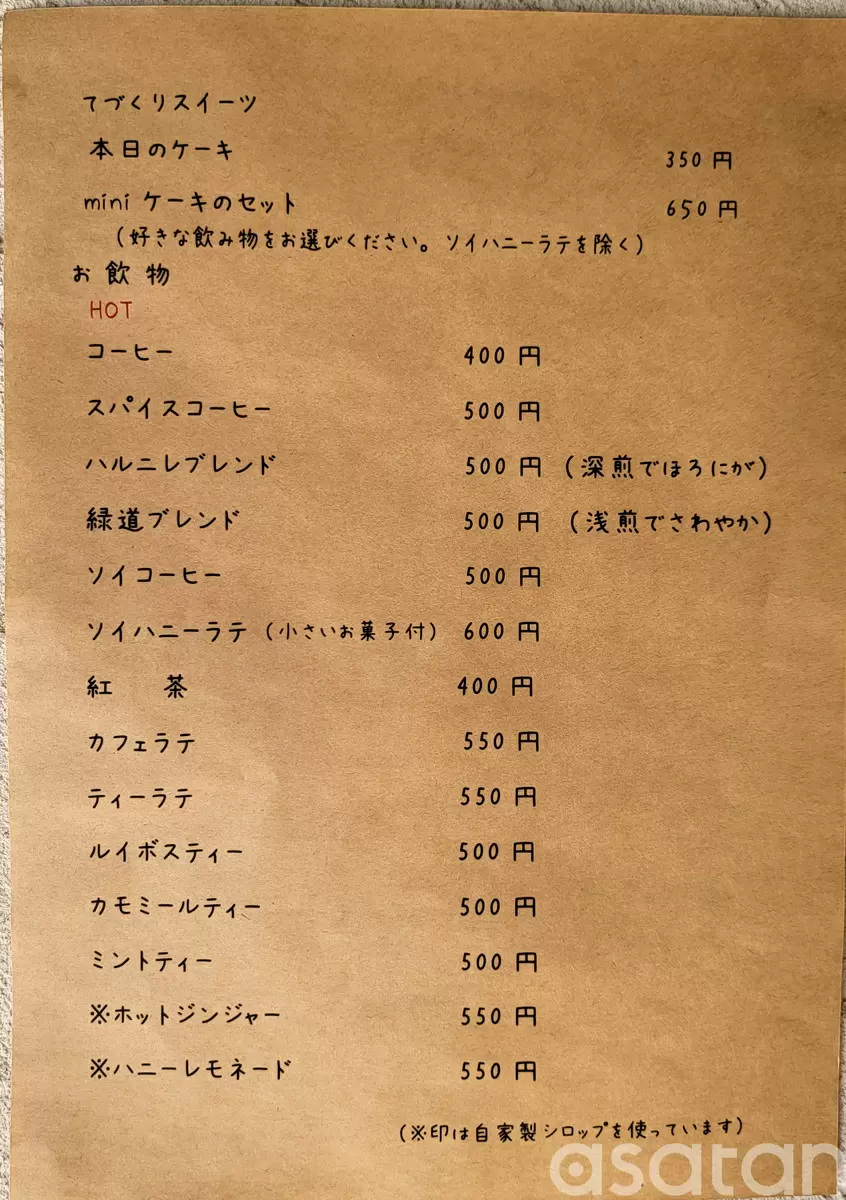 てづくりスイーツ
本日のケーキ 350 円
mini ケーキのセット 650 円
(好きな飲み物をお選びください。ソイハニーラテを除く)
お 飲 物
HOT
コーヒー 400 円
スパイスコーヒー 500 円
ハルニレブレンド 500 円 (深煎でほろにが)
緑道ブレンド 500 円 (浅煎でさわやか)
ソイコーヒー 500 円
ソイハニーラテ (小さいお菓子付) 600 円
紅 茶 400 円
カフェラテ 550 円
ティーラテ 550 円
ルイボスティー 500 円
カモミールティー 500 円
ミントティー 500 円
※ホットジンジャー 550 円
※ハニーレモネード 550 円
(※印は自家製シロップを使っています)
asatan